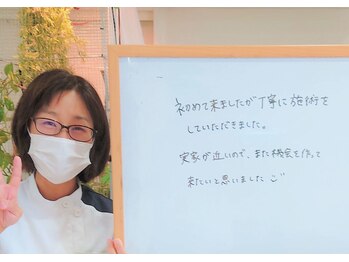 初めて来ましたが丁寧に施術を
していただきました。
実家が近いので、また機会を作って
来たいと思いました